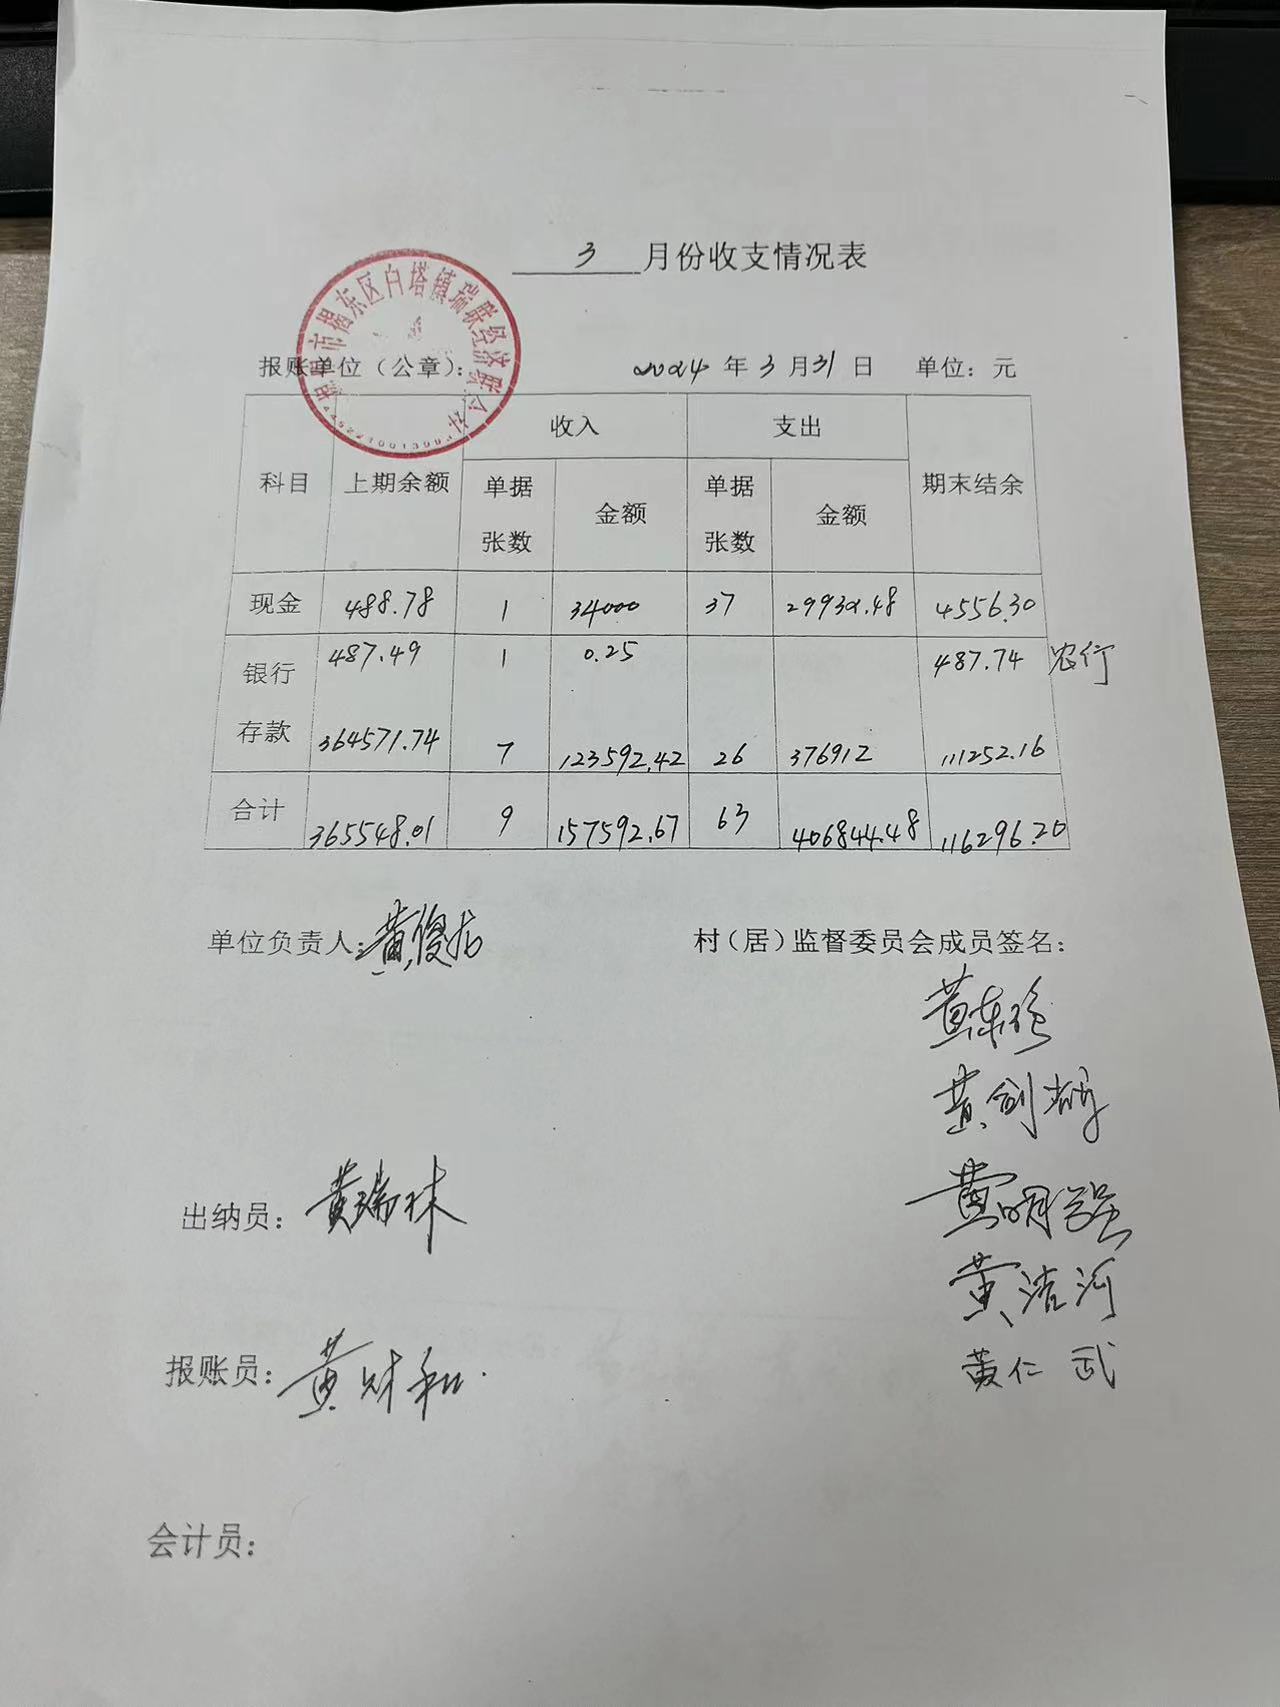 3 月份收支情况表
揭阳市揭东区白塔镇瑞联经济联合社
报账单位（公章）： 2024 年 3 月 31 日 单位：元
科目 上期余额 收入 支出 期末结余
单据张数 金额 单据张数 金额
现金 488.78 1 34000 37 29932.48 4556.30
银行存款 487.49 1 0.25 487.74 农行
364571.74 7 123592.42 26 376912 111252.16
合计 365548.01 9 157592.67 63 406844.48 116296.20
单位负责人： 黄俊龙 村（居）监督委员会成员签名：
黄东
黄剑
黄明强
黄洁河
出纳员： 黄瑞林
黄仁武
报账员： 黄财和
会计员：